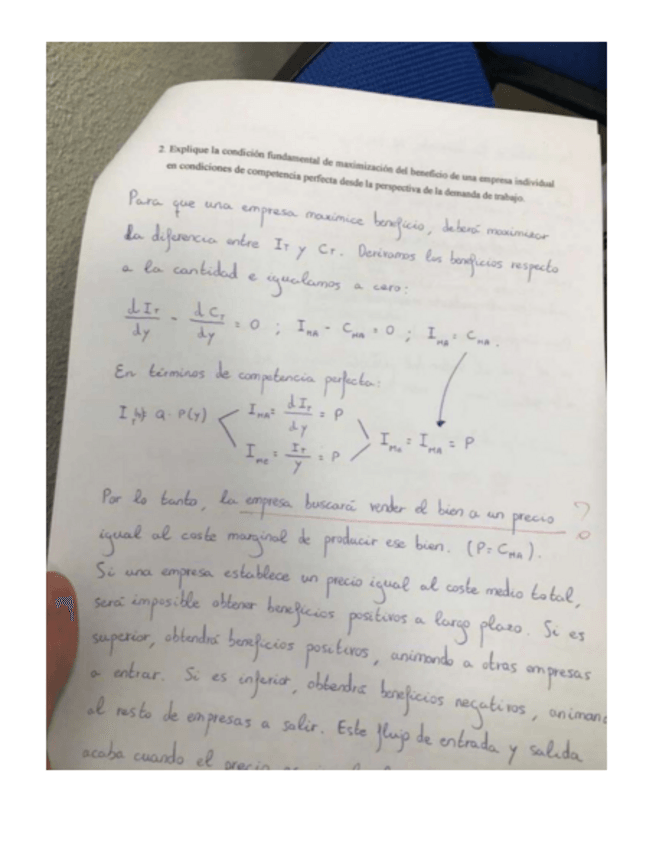 2. Explique la condición fundamental de maximización del beneficio de una empresa individual
en condiciones de competencia perfecta desde la perspectiva de la demanda de trabajo.
Para que una empresa maximice beneficio, deberá maximizar
la diferencia entre IT y CT. Derivamos los beneficios respecto
a la cantidad e igualamos a cero:
dIT/dy - dCT/dy = 0 ; IMA - CMA = 0 ; IMA = CMA.
En términos de competencia perfecta:
IT(y) = Q · P(y) IMA = dIT/dy = P
IME = IT/y = P IME = IMA = P
Por lo tanto, la empresa buscará vender el bien a un precio ?
igual al coste marginal de producir ese bien. (P = CMA).
Si una empresa establece un precio igual al coste medio total,
será imposible obtener beneficios positivos a largo plazo. Si es
superior, obtendrá beneficios positivos, animando a otras empresas
a entrar. Si es inferior, obtendrá beneficios negativos, animan
al resto de empresas a salir. Este flujo de entrada y salida
acaba cuando el precio